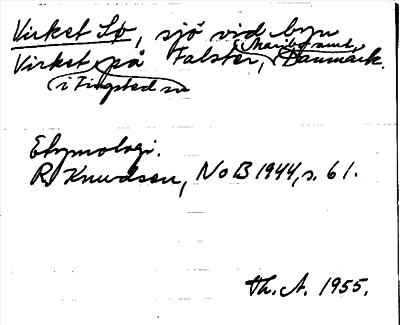 Virket Sø, sjö vid byn
Virket på Falster, Maribo amt, Danmark.
i Tingsted sn
Etymologi.
R. Knudsen, NoB 1944, s. 61.
Th. A. 1955.